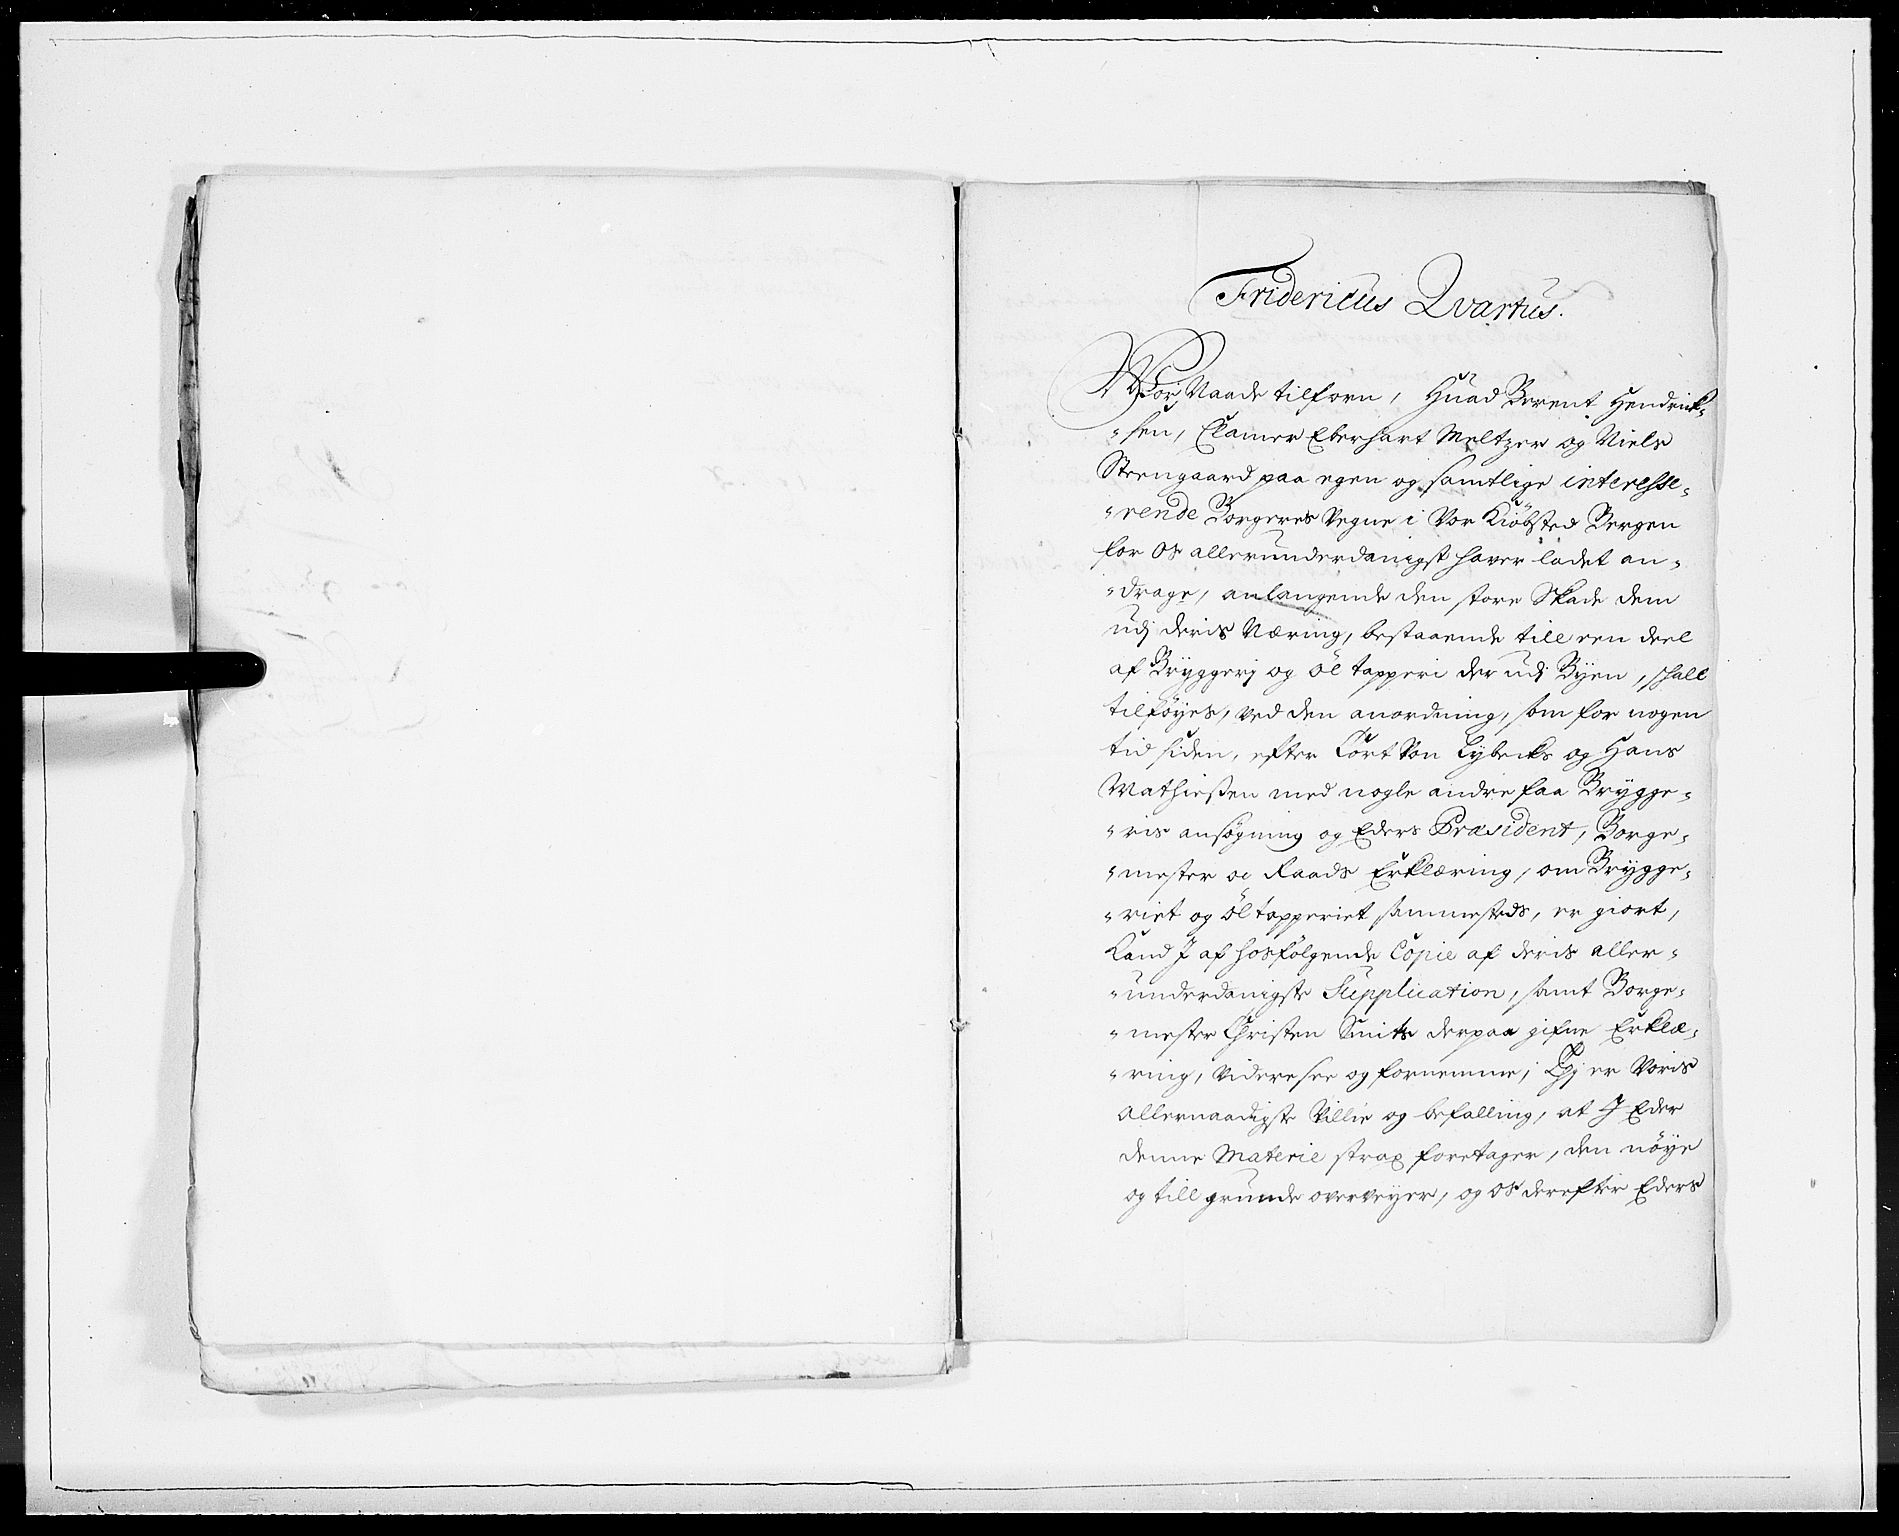 Fridericus Qvartus.
Vor Naade tilforn, Huad Berent Hendrick-
-sen, Clamer Eberhart Meltzer og Niels
Steengaard paa egen og samtlige interesse-
-rende Borgeres Vegne i Vor Kiöbsted Bergen
for Os allerunderdanigst haver ladet an-
-drage, anlangende den store Skade dem
udj deris Næring, bestaaende till een deel
af Bryggerj og öl tapperi der udj Byen, schall
tilföyes, ved den anordning, som for nogen
tid siden, efter Cort Von Lybecks og Hans
Mathiesen med nogle andre faa Brygge-
-ris ansögning og Eders Præsident, Borge-
-mester oc Raads Erklæring, om Brygge-
-riet og öltapperiet sammesteds, er giort,
Kand J af hosfölgende Copie af deris aller-
-underdanigste Supplication, samt Borge-
-mester Christen Smits derpaa gifne Erklæ-
-ring, videre see og fornemme; Thj er Voris
allernaadigste Villie og befalling, at J Eder
denne Materie strax foretager, den nöye
og till grunde overveyer, og Os derefter Eders